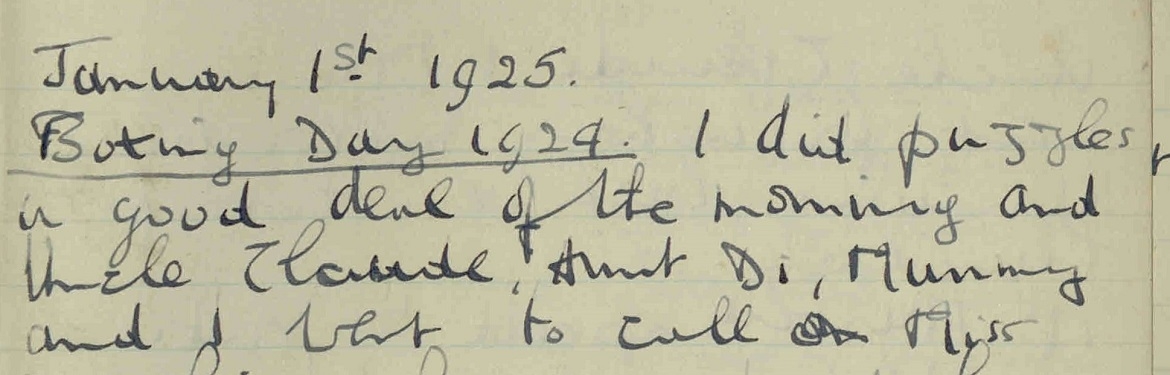 January 1st 1925.
Boxing Day 1924. I did puzzles
a good deal of the morning and
Uncle Claude, Aunt Di, Mummy
and I went to call on Miss